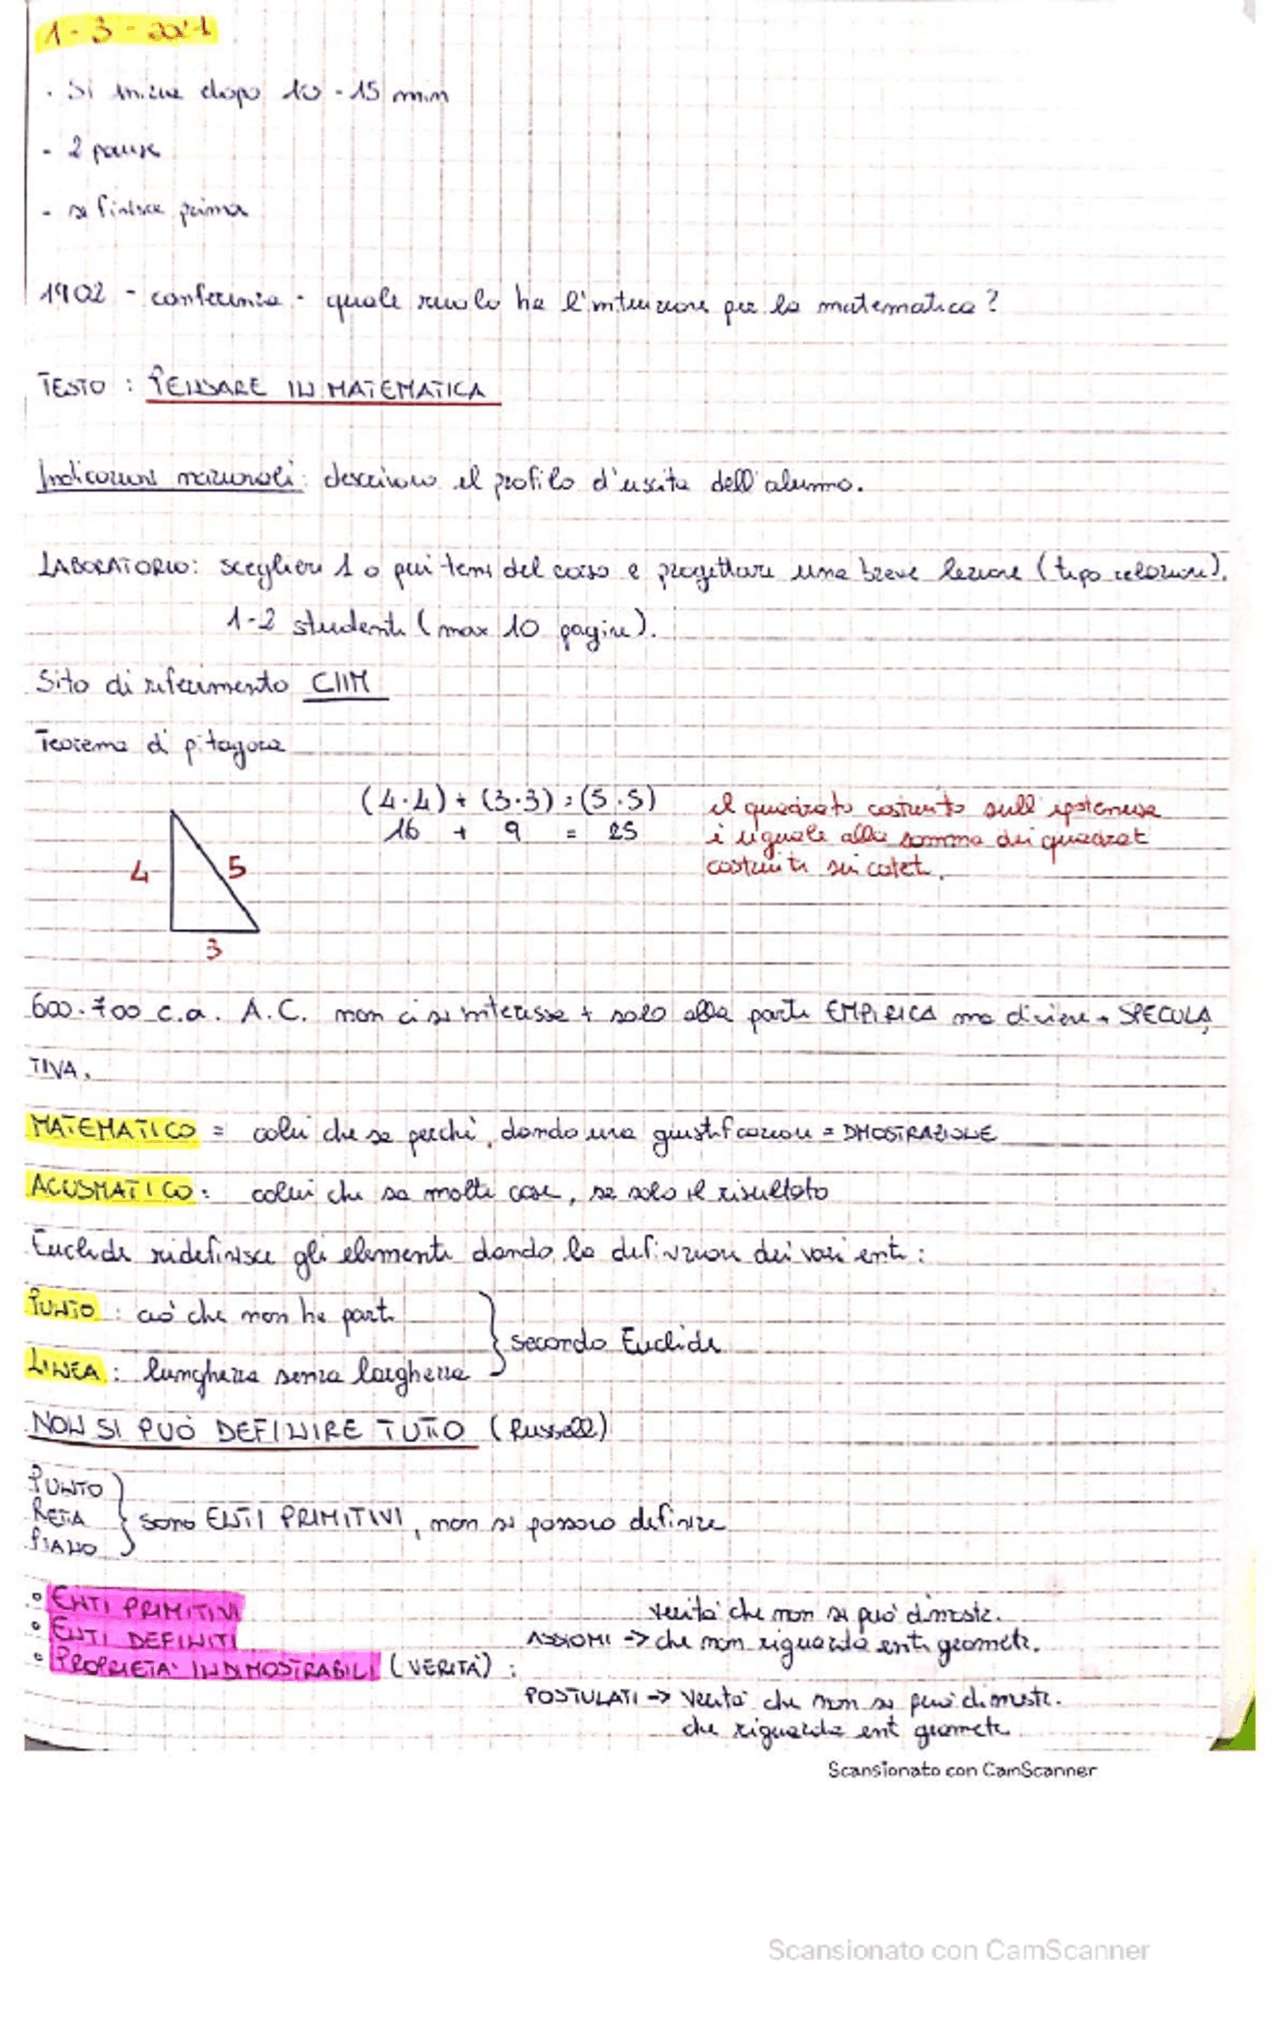 1-3-2021
. Si inizia dopo 10-15 min
- 2 pause
- si finisce prima
1902 - conferenza - quale ruolo ha l'intuizione per la matematica?
TESTO : PENSARE IN MATEMATICA
Indicazioni nazionali: descrivono il profilo d'uscita dell'alunno.
LABORATORIO: scegliere 1 o più temi del corso e progettare una breve lezione (tipo relazione).
1-2 studenti (max 10 pagine).
Sito di riferimento CIIM
Teorema di pitagora
(4·4) + (3·3) = (5·5)
16 + 9 = 25
il quadrato costruito sull'ipotenusa
è uguale alla somma dei quadrat
costruiti sui catet.
4
5
3
600-700 c.a. A.C. non ci si interessa + solo alla parte EMPIRICA ma diviene + SPECULA
TIVA.
MATEMATICO = colui che sa perchè, dando una giustificazione = DMOSTRAZIONE
ACUSMATICO: colui che sa molte cose, sa solo il risultato
Euclide ridefinisce gli elementi dando la definizione dei vari enti:
PUNTO : ciò che non ha parti
LINEA : lunghezza senza larghezza
secondo Euclide
NON SI PUÒ DEFINIRE TUTTO (Russell)
PUNTO
RETTA
PIANO
sono ENTI PRIMITIVI, non si possono definire
° ENTI PRIMITIVI
° ENTI DEFINITI
° PROPRIETA' INDIMOSTRABILI (VERITÀ) :
verità che non si può dimostr.
ASSIOMI -> che non riguarda enti geometr.
POSTULATI -> verità che non si può dimostr.
che riguarda ent geometr.
Scansionato con CamScanner
Scansionato con CamScanner